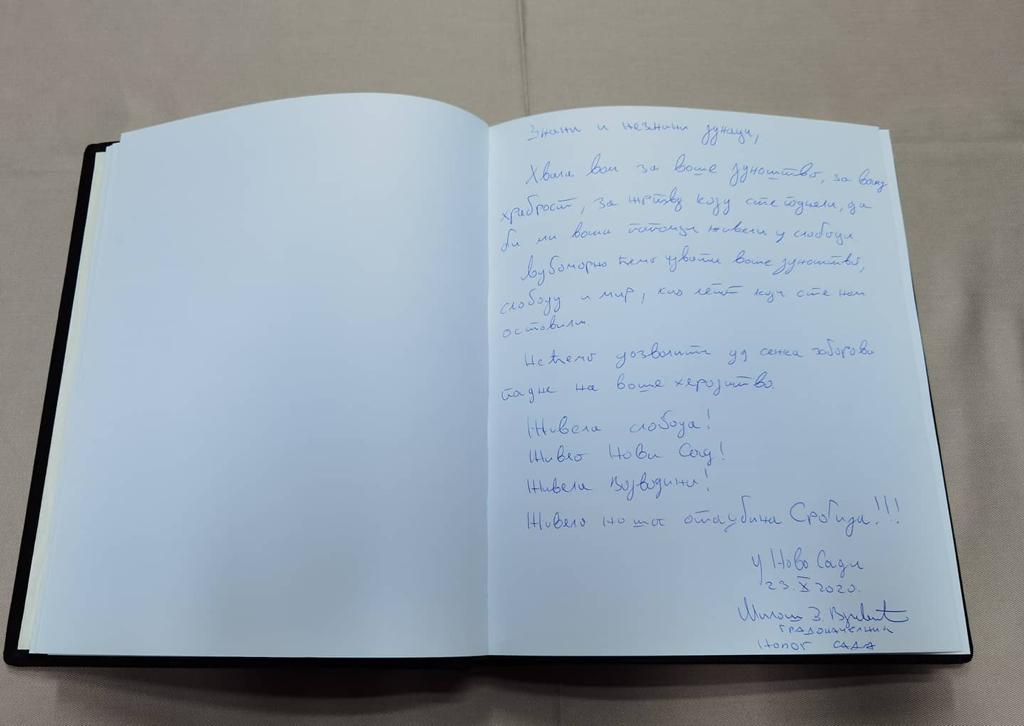 Знани и незнани јунаци,
Хвала вам за ваше јунаштво, за вашу
храброст, за жртву коју сте поднели, да
би ми ваши потомци живели у слободи.
Љубоморно ћемо чувати ваше јунаштво,
слободу и мир, као што сте нам
оставили.
Нећемо дозволити да сенка заборава
падне на ваше херојство.
Живела слобода!
Живео Нови Сад!
Живела Војводина!
Живела наша отаџбина Србија!!!
У Новом Саду
23. X 2020.
Милош
градоначелник
Новог Сада